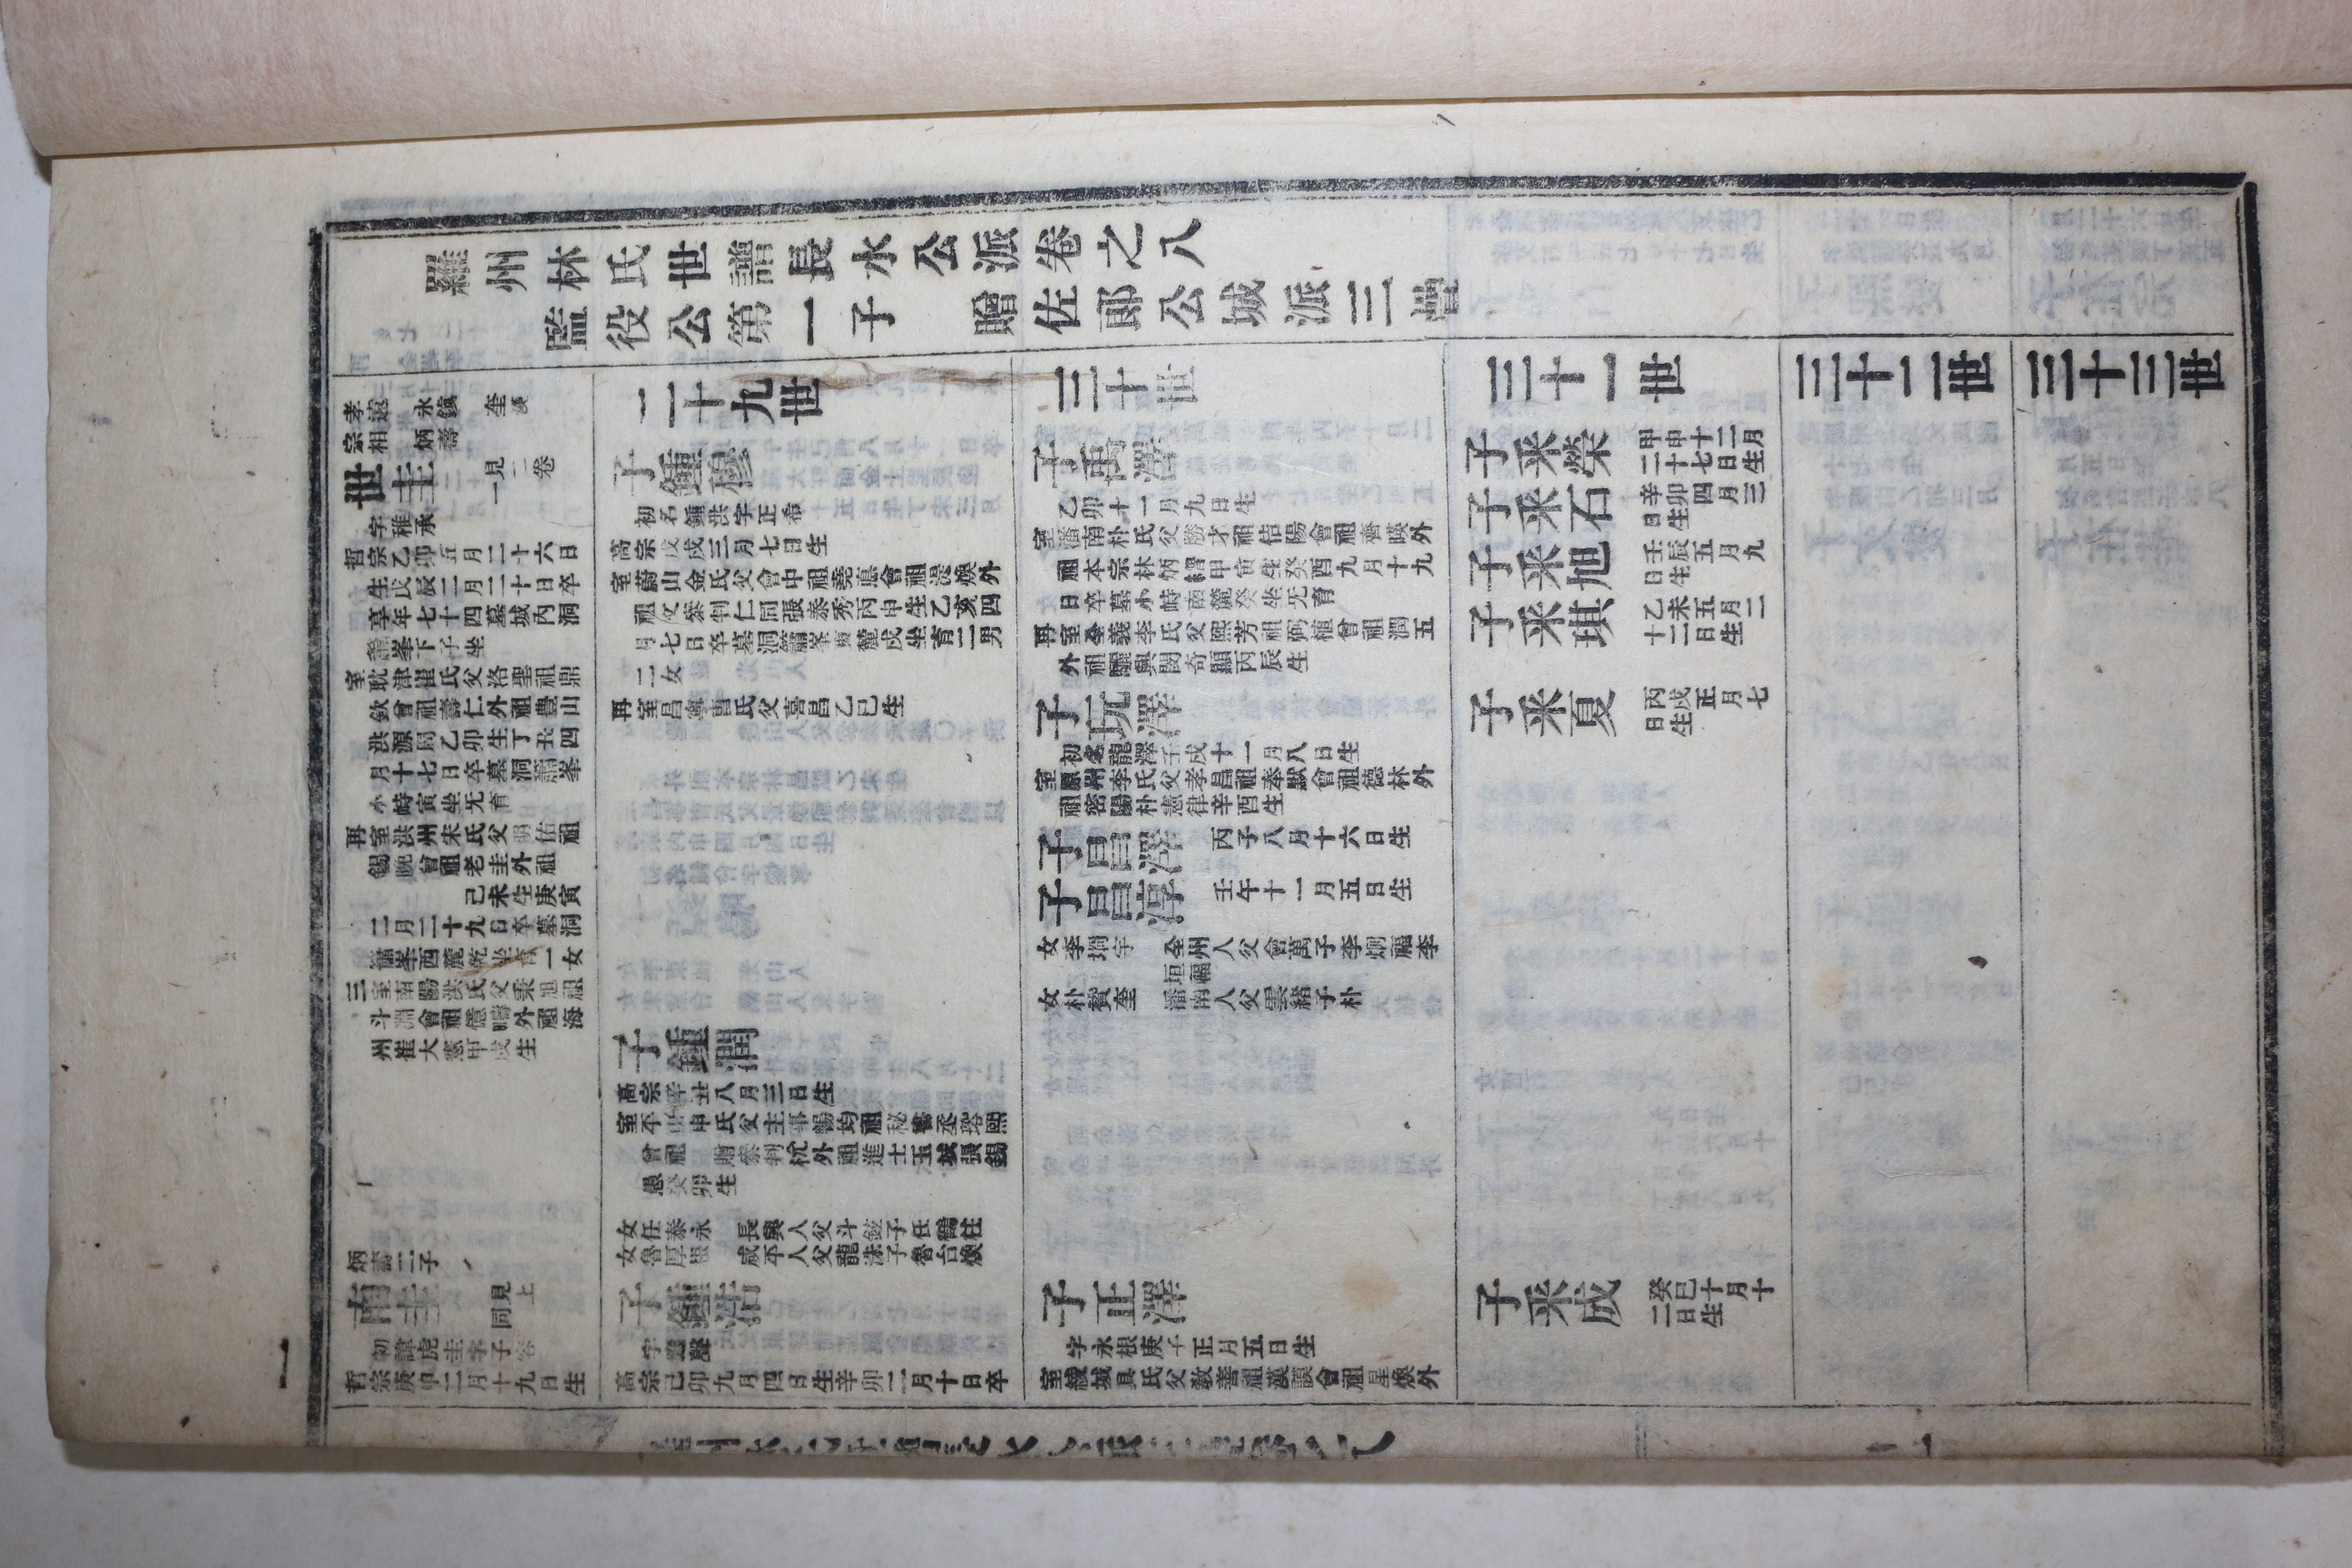 羅州林氏世譜長水公派卷之八
監役公第一子 贈佐郎公城派三曾
孝遠 永鎮 奎漢
宗相 炳壽
世圭 見二卷一
字稚承
哲宗乙卯五月二十六日
生戊辰二月二十日卒
享年七十四墓城內洞
簫峯下子坐
室耽津崔氏父洛聖祖鼎
欽曾祖壽仁外祖豊山
洪源周乙卯生丁丑四
月十七日卒墓洞簫峯
小峙寅坐旡育
再室洪州宋氏父明佑祖
錫晩曾祖老圭外祖
己未生庚寅
二月二十九日卒墓洞
簫峯西麓乾坐育一女
三室南陽洪氏父乘旭祖
斗淵會祖億疇外祖海
州崔大憲甲戌生
炳壽二子
南圭 見上同
初諱虎圭字子容
哲宗庚申二月十九日生
二十九世
子鍾穆
初名鍾洪字正希
高宗戊戌三月七日生
室蔚山金氏父會中祖堯悳會祖湜煥外
祖文寨判仁同張泰秀丙申生乙亥四
月七日卒墓洞簫峯東麓戌坐育二男
二女
再室昌寧曺氏父喜昌乙巳生
子鍾潤
高宗辛丑八月三日生
室平山申氏父主事暢均祖秘書丞瑢熙
曾祖 贈寮判杭外祖進士玉城張錫
愚癸卯生
女任泰永 長興人父斗鉉子任鶴柱
女魯厚根 咸平人父龍洙子魯台煥
子鍾浩
高宗己卯九月四日生辛卯二月十日卒
三十世
子禹澤
乙卯十一月九日生
室潘南朴氏父勝才祖佶陽會祖齊暎外
祖本宗林炳縉甲寅生癸酉九月十九
日卒墓小峙南麓癸坐旡育
再室全義李氏父熙芳祖弼植曾祖潤五
外祖驪興閔奇顯丙辰生
子玩澤
初名龍澤壬戌十一月八日生
室原州李氏父孝昌祖奉默會祖德林外
祖密陽朴憲律辛酉生
子昌澤 丙子八月十六日生
子昌淳 壬午十一月五日生
女李壎宇 全州人父會萬子李炯福李
垣福
女朴贊奎 潘南人父雲緖子朴
子正澤
字永根庚子正月五日生
室綾城具氏父敎善祖漢謨會祖星煥外
三十一世
子釆榮 甲申十二月二十七日生
子釆石 辛卯四月三日生
子釆旭 壬辰五月九日生
子釆琪 乙未五月二十二日生
子釆夏 丙戌正月七日生
子釆成 癸巳十月十二日生
三十二世
三十三世
一